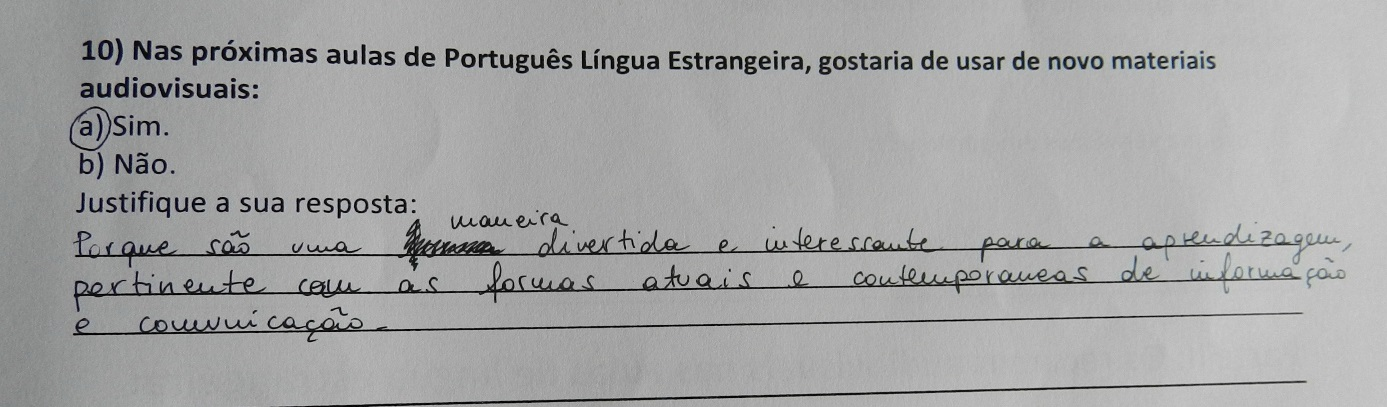 10) Nas próximas aulas de Português Língua Estrangeira, gostaria de usar de novo materiais
audiovisuais:
a) Sim.
b) Não.
Justifique a sua resposta:
maneira
Porque são uma divertida e interessante para a aprendizagem,
pertinente com as formas atuais e contemporaneas de informação
e comunicação.